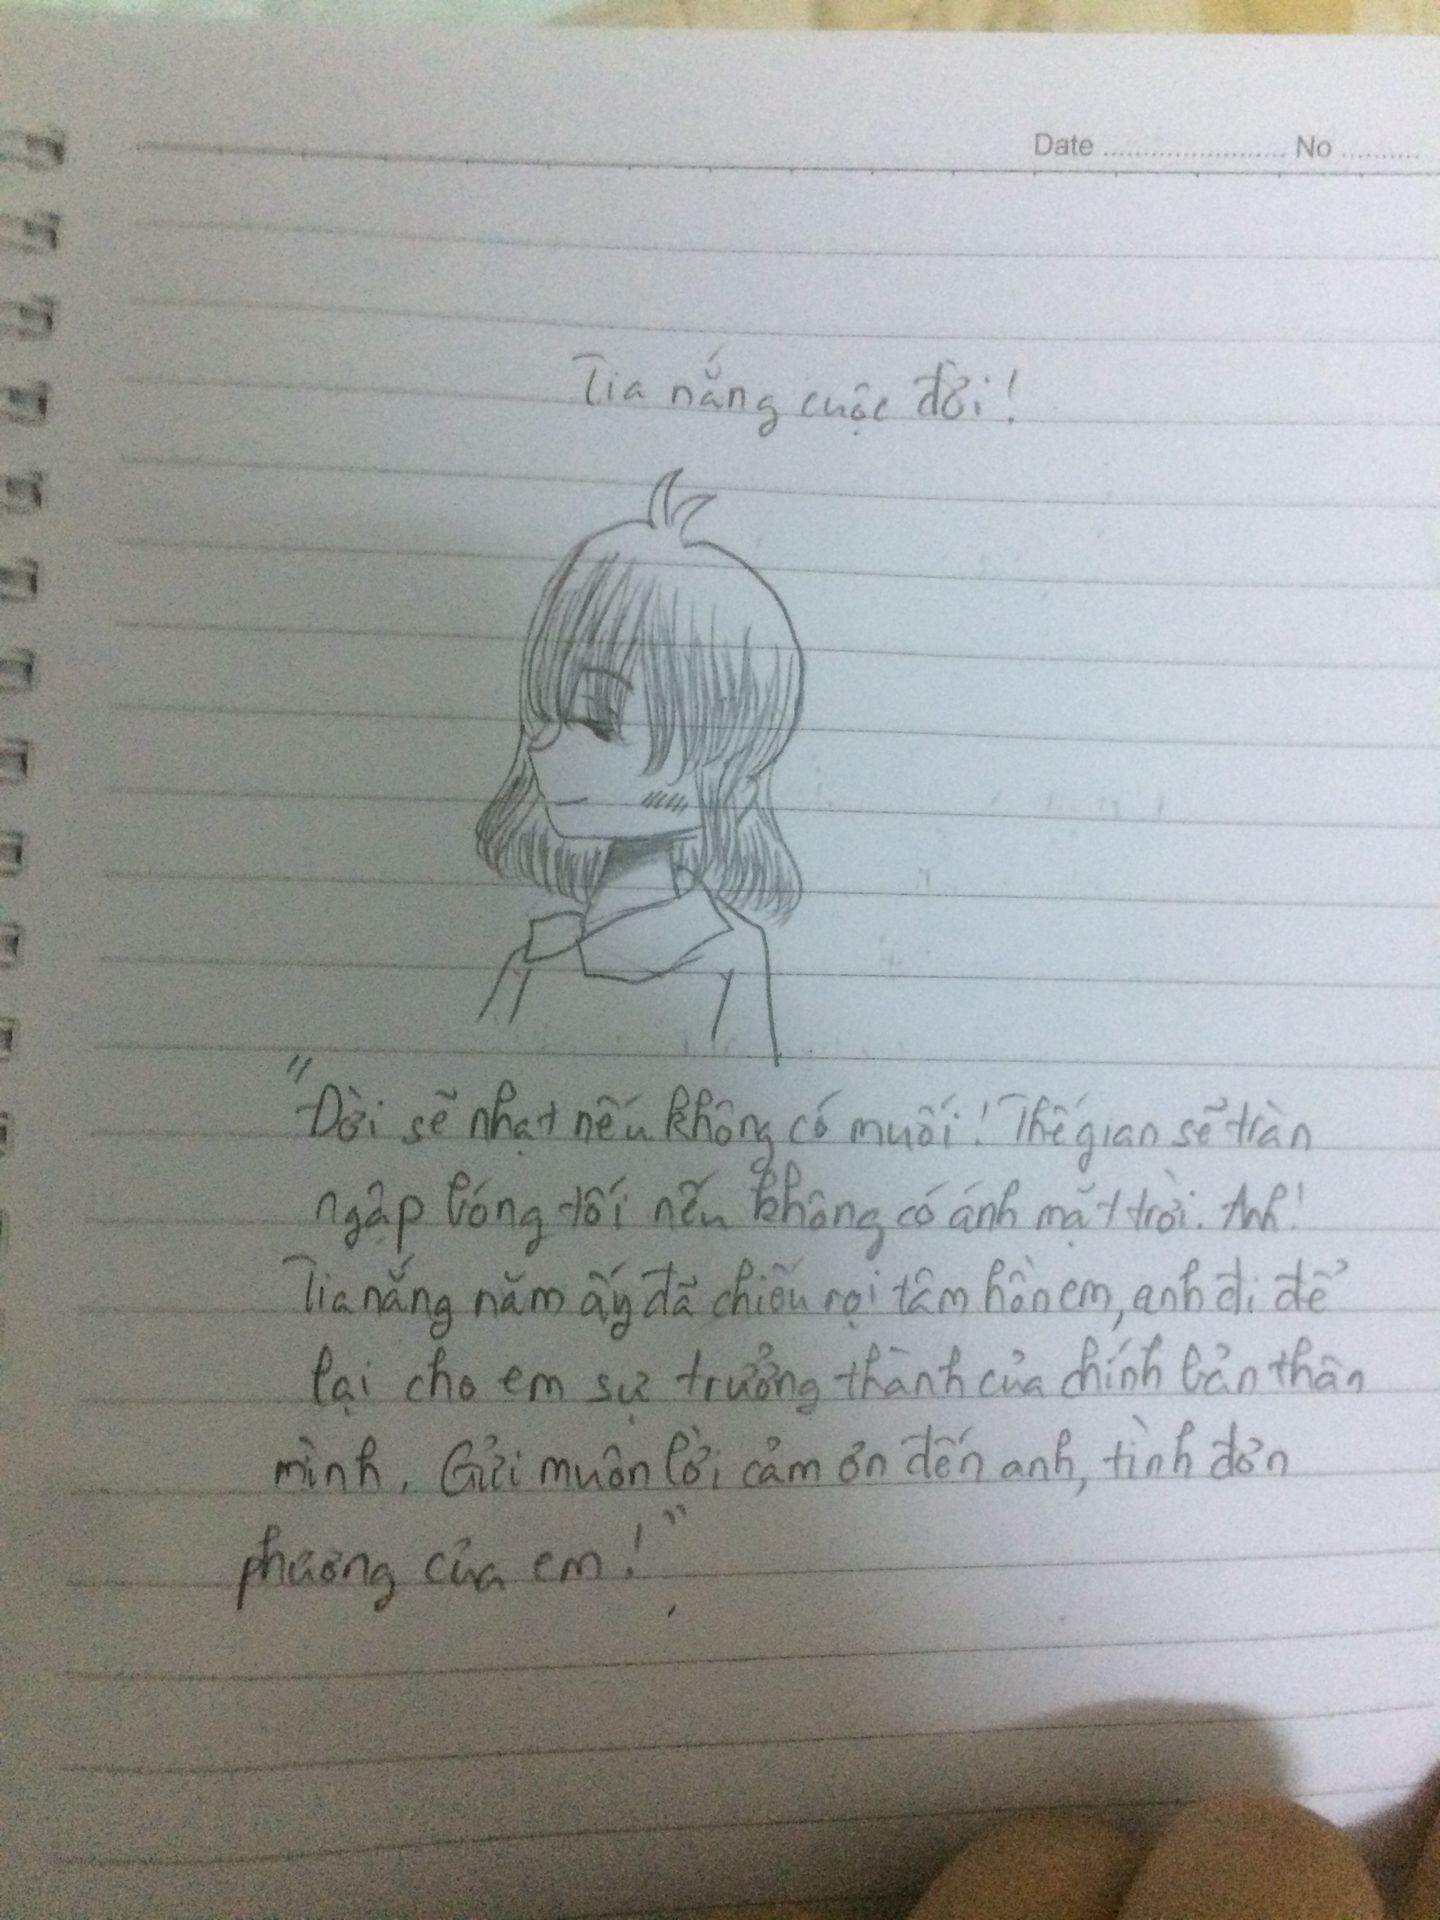 Date ........................ No ..........
Tia nắng cuộc đời!
"Đời sẽ nhạt nếu không có muối! Thế gian sẽ tràn
ngập bóng tối nếu không có ánh mặt trời. Anh!
Tia nắng năm ấy đã chiếu rọi tâm hồn em, anh đi để
lại cho em sự trưởng thành của chính bản thân
mình. Gửi muôn lời cảm ơn đến anh, tình đơn
phương của em!"